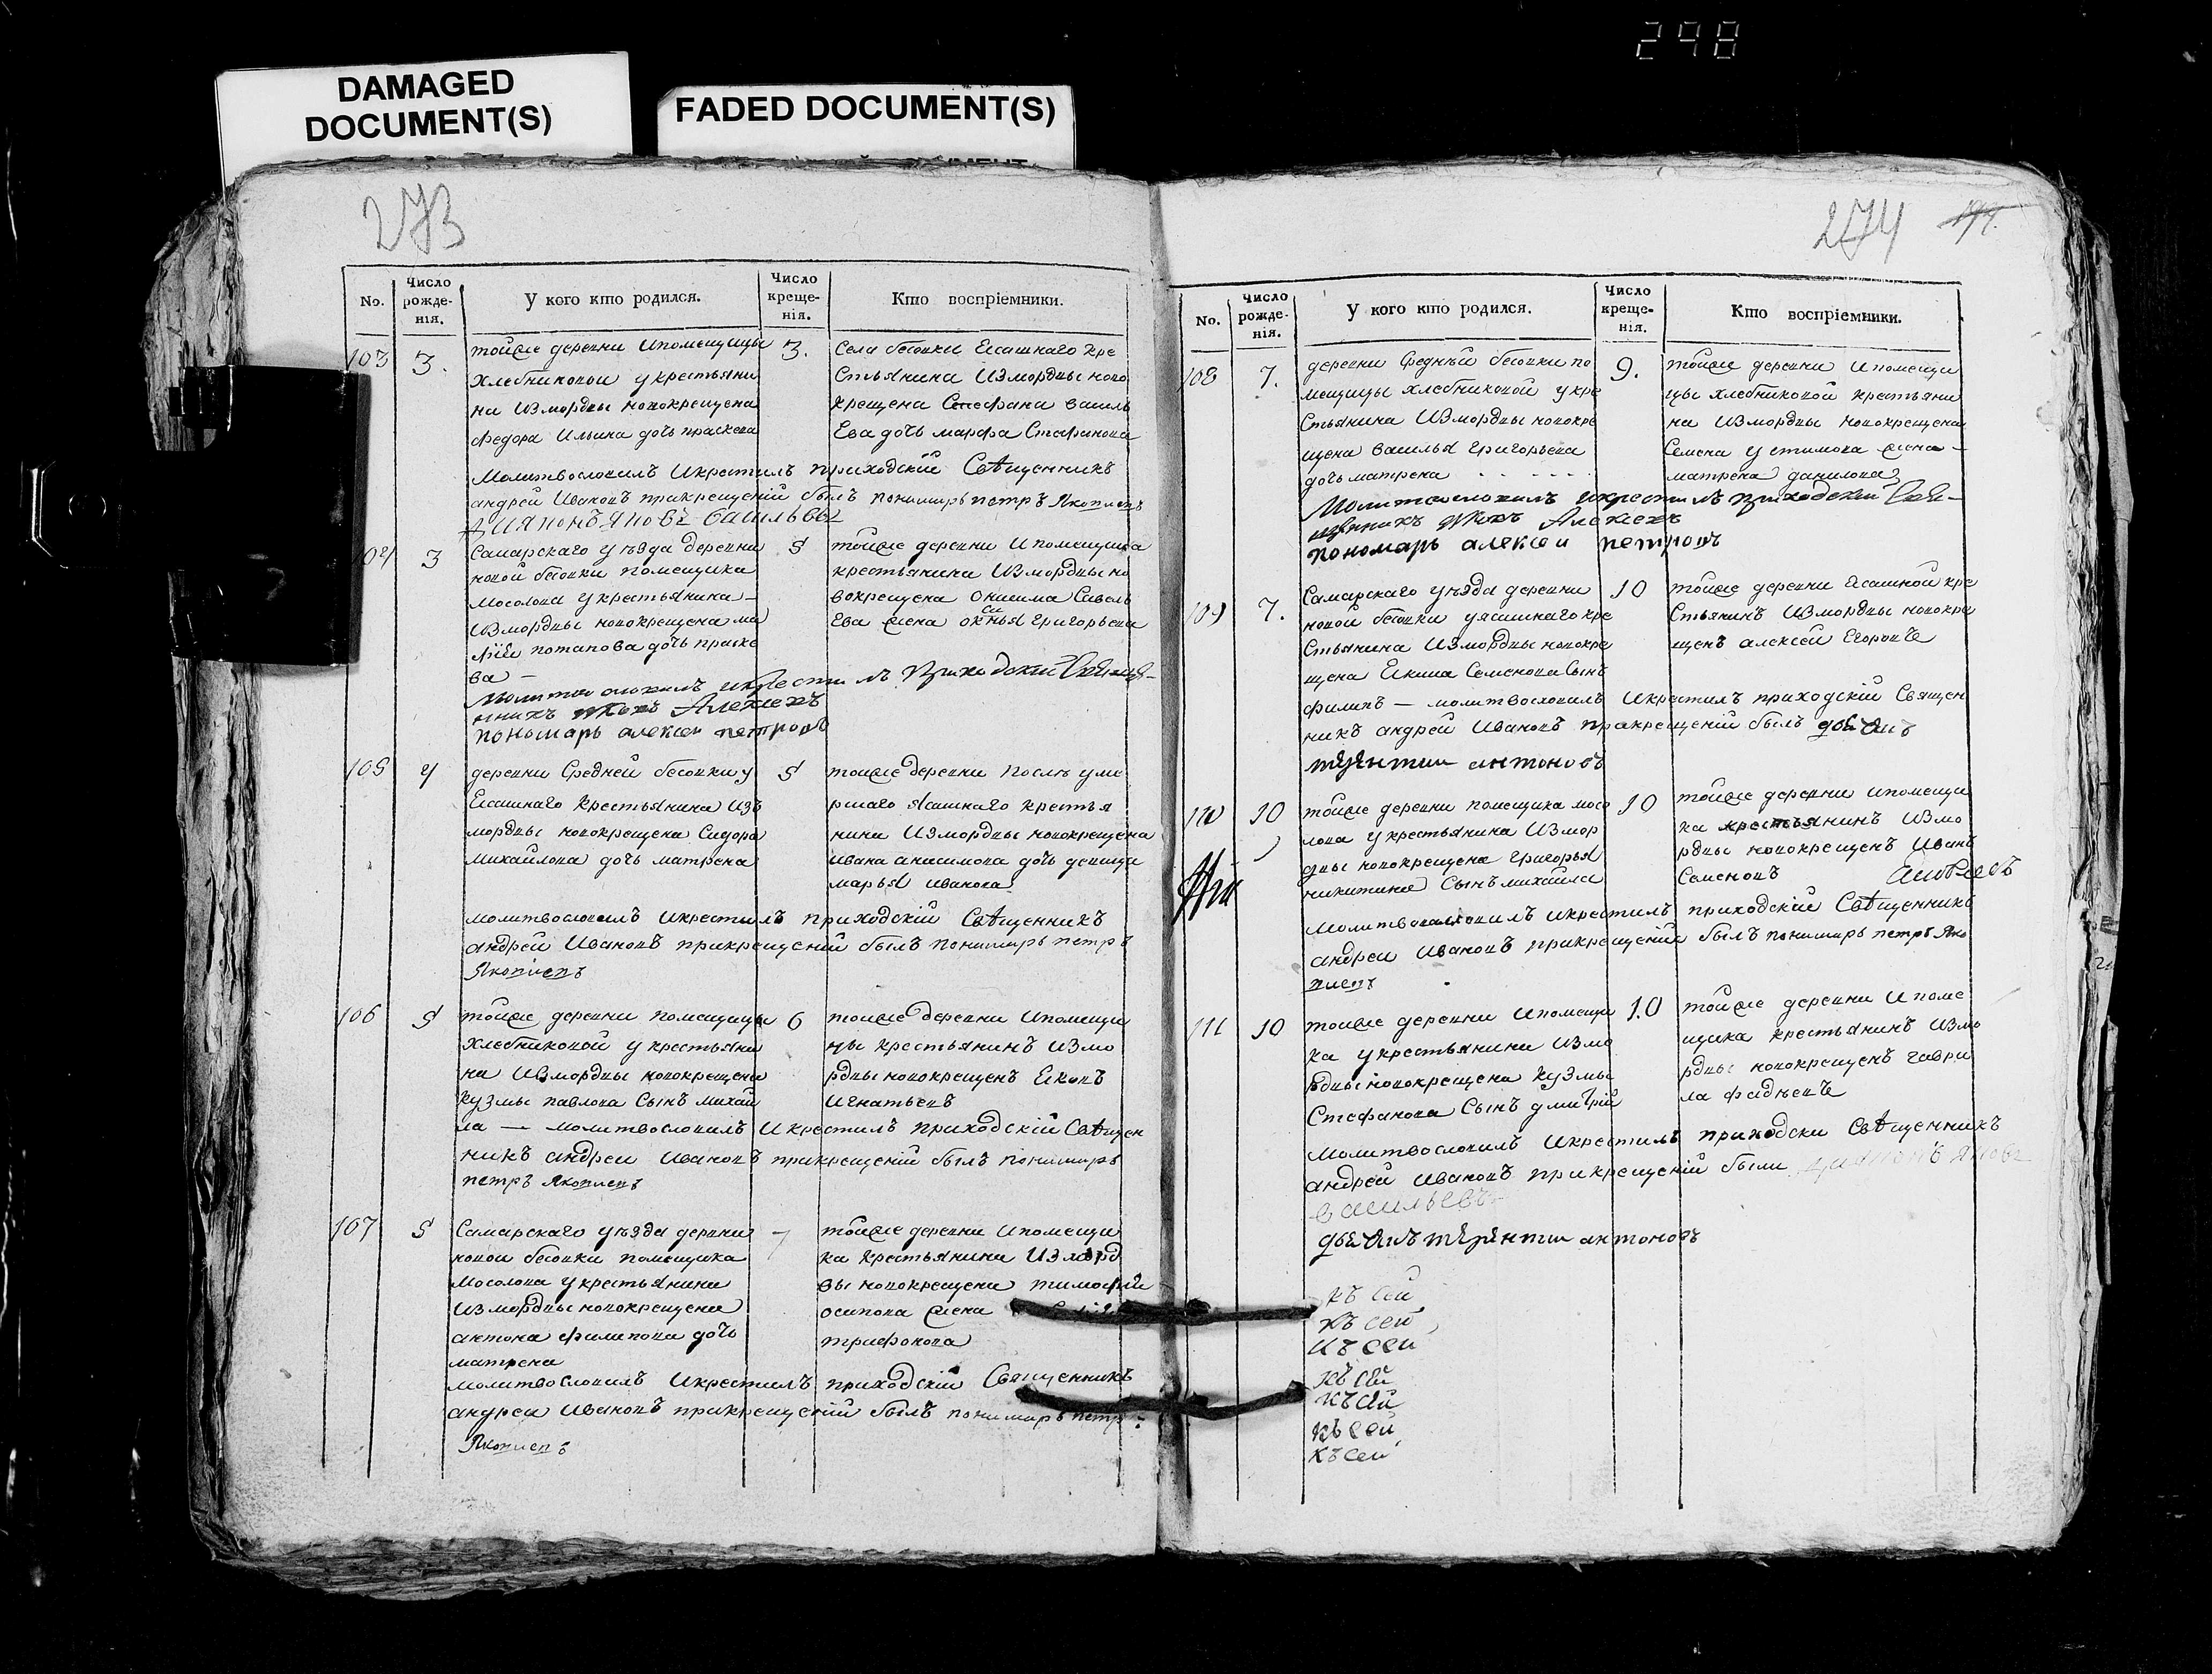 298
DAMAGED
DOCUMENT(S)
FADED DOCUMENT(S)
273
No.
Число рожде- нія.
У кого кто родился.
Число креще- нія.
Кто воспріемники.
103 3.
тойже деревни Ипомещицы
хлебниковой укрестьяни
на Измордвы новокрещена
федора Ильина дочь праскева
3.
Села бесовки Есашнаго кре
стьянина Измордвы ново
крещена Стефана василь
Ева дочь марфа Стефанова
Молитвословилъ Икрестилъ приходскій Священникъ
андрей Ивановъ прикрещеній былъ пономарь петръ Яковлевъ
васильевъ
104 3
Самарскаго уѣзда деревни
новой бесовки помещика
Мосолова укрестьянина
Измордвы новокрещена
потапова дочь праске
ва
5
тойже деревни Ипомещика
крестьянина Измордвы но
вокрещена Онисима Савель
Ева жена оксинья григорьева
Молитвословилъ икрестилъ приходскии
Алексеевъ
пономарь алексеи петровъ
105 4
деревни Средней бесовки у
Есашнаго крестьянина изъ
мордвы новокрещена Сидора
михайлова дочь матрена
5
тойже деревни после уме
ршаго Ясашнаго крестья
нина Измордвы новокрещена
ивана анисимова дочь девица
марья иванова
молитвословилъ икрестилъ приходскій Священникъ
андрей Ивановъ прикрещеній былъ пономарь петръ
Яковлевъ
106 5
тойже деревни помещицы
хлебниковой укрестьяни
на Измордвы новокрещена
кузмы павлова Сынъ михай
ла — молитвословилъ Икрестилъ приходскій Священ
никъ андреи ивановъ прикрещеній былъ пономарь
петръ Яковлевъ
6
тойже деревни Ипомещи
цы крестьянинъ Измо
рдвы новокрещенъ
Игнатьевъ
107 5
Самарскаго уѣзда деревни
новои бесовки помещика
Мосолова укрестьянина
Измордвы новокрещена
антона филипова дочь
матрена
7
тойже деревни Ипомещи
ка крестьянина Изморд
вы новокрещена тимофея
осипова жена
трифонова
молитвословилъ Икрестилъ приходскій Священникъ
андреи Ивановъ прикрещеній былъ пономарь петръ
Яковлевъ
274
No.
Число рожде- нія.
У кого кто родился.
Число креще- нія.
Кто воспріемники.
108 7.
деревни Средней бесовки по
мещицы хлебниковой укре
стьянина Измордвы новокре
щена василья григорьева
дочь матрена
9.
тойже деревни Ипомещи
цы хлебниковой крестьяни
на Измордвы новокрещена
Семена устимова жена
матрена данилова
Молитвословилъ икрестилъ приходскии
Алексеевъ
пономарь алексеи петровъ
109 7.
Самарскаго уѣзда деревни
новой бесовки уясашнаго кре
стьянина Измордвы новокре
щена Екима Семенова Сынъ
филипъ — молитвословилъ Икрестилъ приходскій Священ
никъ андрей Ивановъ прикрещеній былъ
терентии антоновъ
10
тойже деревни Есашной кре
стьянинъ Измордвы новокре
щенъ алексей Егоровъ
110 10
тойже деревни помещика мосо
лова укрестьянина Измор
двы новокрещена григорья
никитина Сынъ михайла
10
тойже деревни ипомещи
ка крестьянинъ Измо
рдвы новокрещенъ Иванъ
Семеновъ
молитвословилъ икрестилъ приходскій Священникъ
андреи Ивановъ прикрещеній былъ пономарь петръ Яко
влевъ
111 10
тойже деревни Ипомещи
ка укрестьянина Измо
рдвы новокрещена кузмы
Стефанова Сынъ дмитрій
10
тойже деревни Ипоме
щика крестьянинъ Измо
рдвы новокрещенъ гаври
ла фадѣевъ
Молитвословилъ Икрестилъ приходски Священникъ
андрей Ивановъ прикрещеній были
васильевъ
терентии антоновъ
къ сей
къ сей
къ сеи
къ сей
къ сей
къ сей
къ сеи